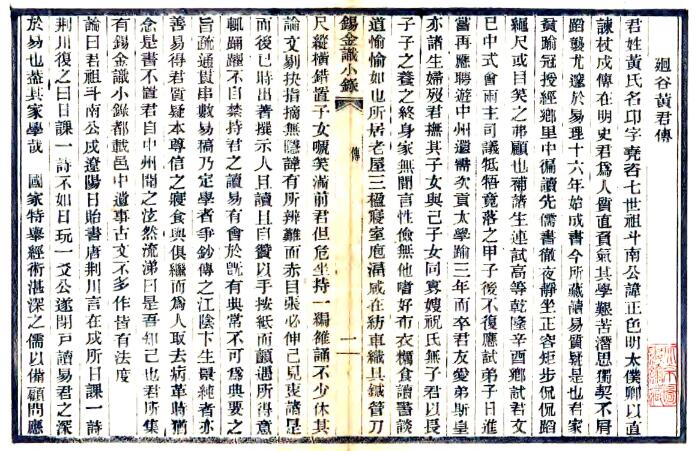 迴谷黃君傳
君姓黃氏名卬字堯咨七世祖斗南公諱正色明太僕卿以直
諫杖戍傳在明史君為人質直負氣其學艱苦潛思獨契不屑
蹈襲尤邃於易理十六年始成書今所藏讀易質疑是也君家
貧踰冠授經鄉里中徧讀先儒書徹夜靜坐正容矩步侃侃蹈
繩尺或目笑之弗顧也補諸生連試高等乾隆辛酉鄉試君文
已中式會兩主司議牴牾竟落之甲子後不復應試弟子日進
當再應聘遊中州還需次貢太學踰三年而卒君友愛弟斯皇
亦諸生婦歿君撫其子女與己子女同寡嫂祝氏無子君以長
子子之養之終身家無閒言性儉無他嗜好布衣糲食讀書談
道愉愉如也所居老屋三楹寢室庖湢咸在紡車織具鍼管刀
錫金識小錄
傳
一
尺縱橫錯置子女嘅笑滿前君但危坐持一編雒誦不少休其
論文剔抉指摘無隱諱有所辨難面赤目張必伸己見衷諸是
而後已時出著撰示人且讀且自贊以手按紙而顫遇所得意
輒踊躍不自禁持君之讀易有會於旣有典常不可為典要之
旨疏通貫串數易稿乃定學者爭鈔傳之江陰卞生景純者亦
善易得君質疑本尊信之寢食與俱繼而為人取去病革時猶
念是書不置君自中州聞之泫然流涕曰是吾知己也君所集
有錫金識小錄都載邑中遺事古文不多作皆有法度
論曰君祖斗南公戍遼陽日貽書唐荊川言在戍所日課一詩
荊川復之曰日課一詩不如日玩一爻公遂閉戸讀易君之深
於易也蓋其家學哉　國家特舉經術湛深之儒以備顧問應